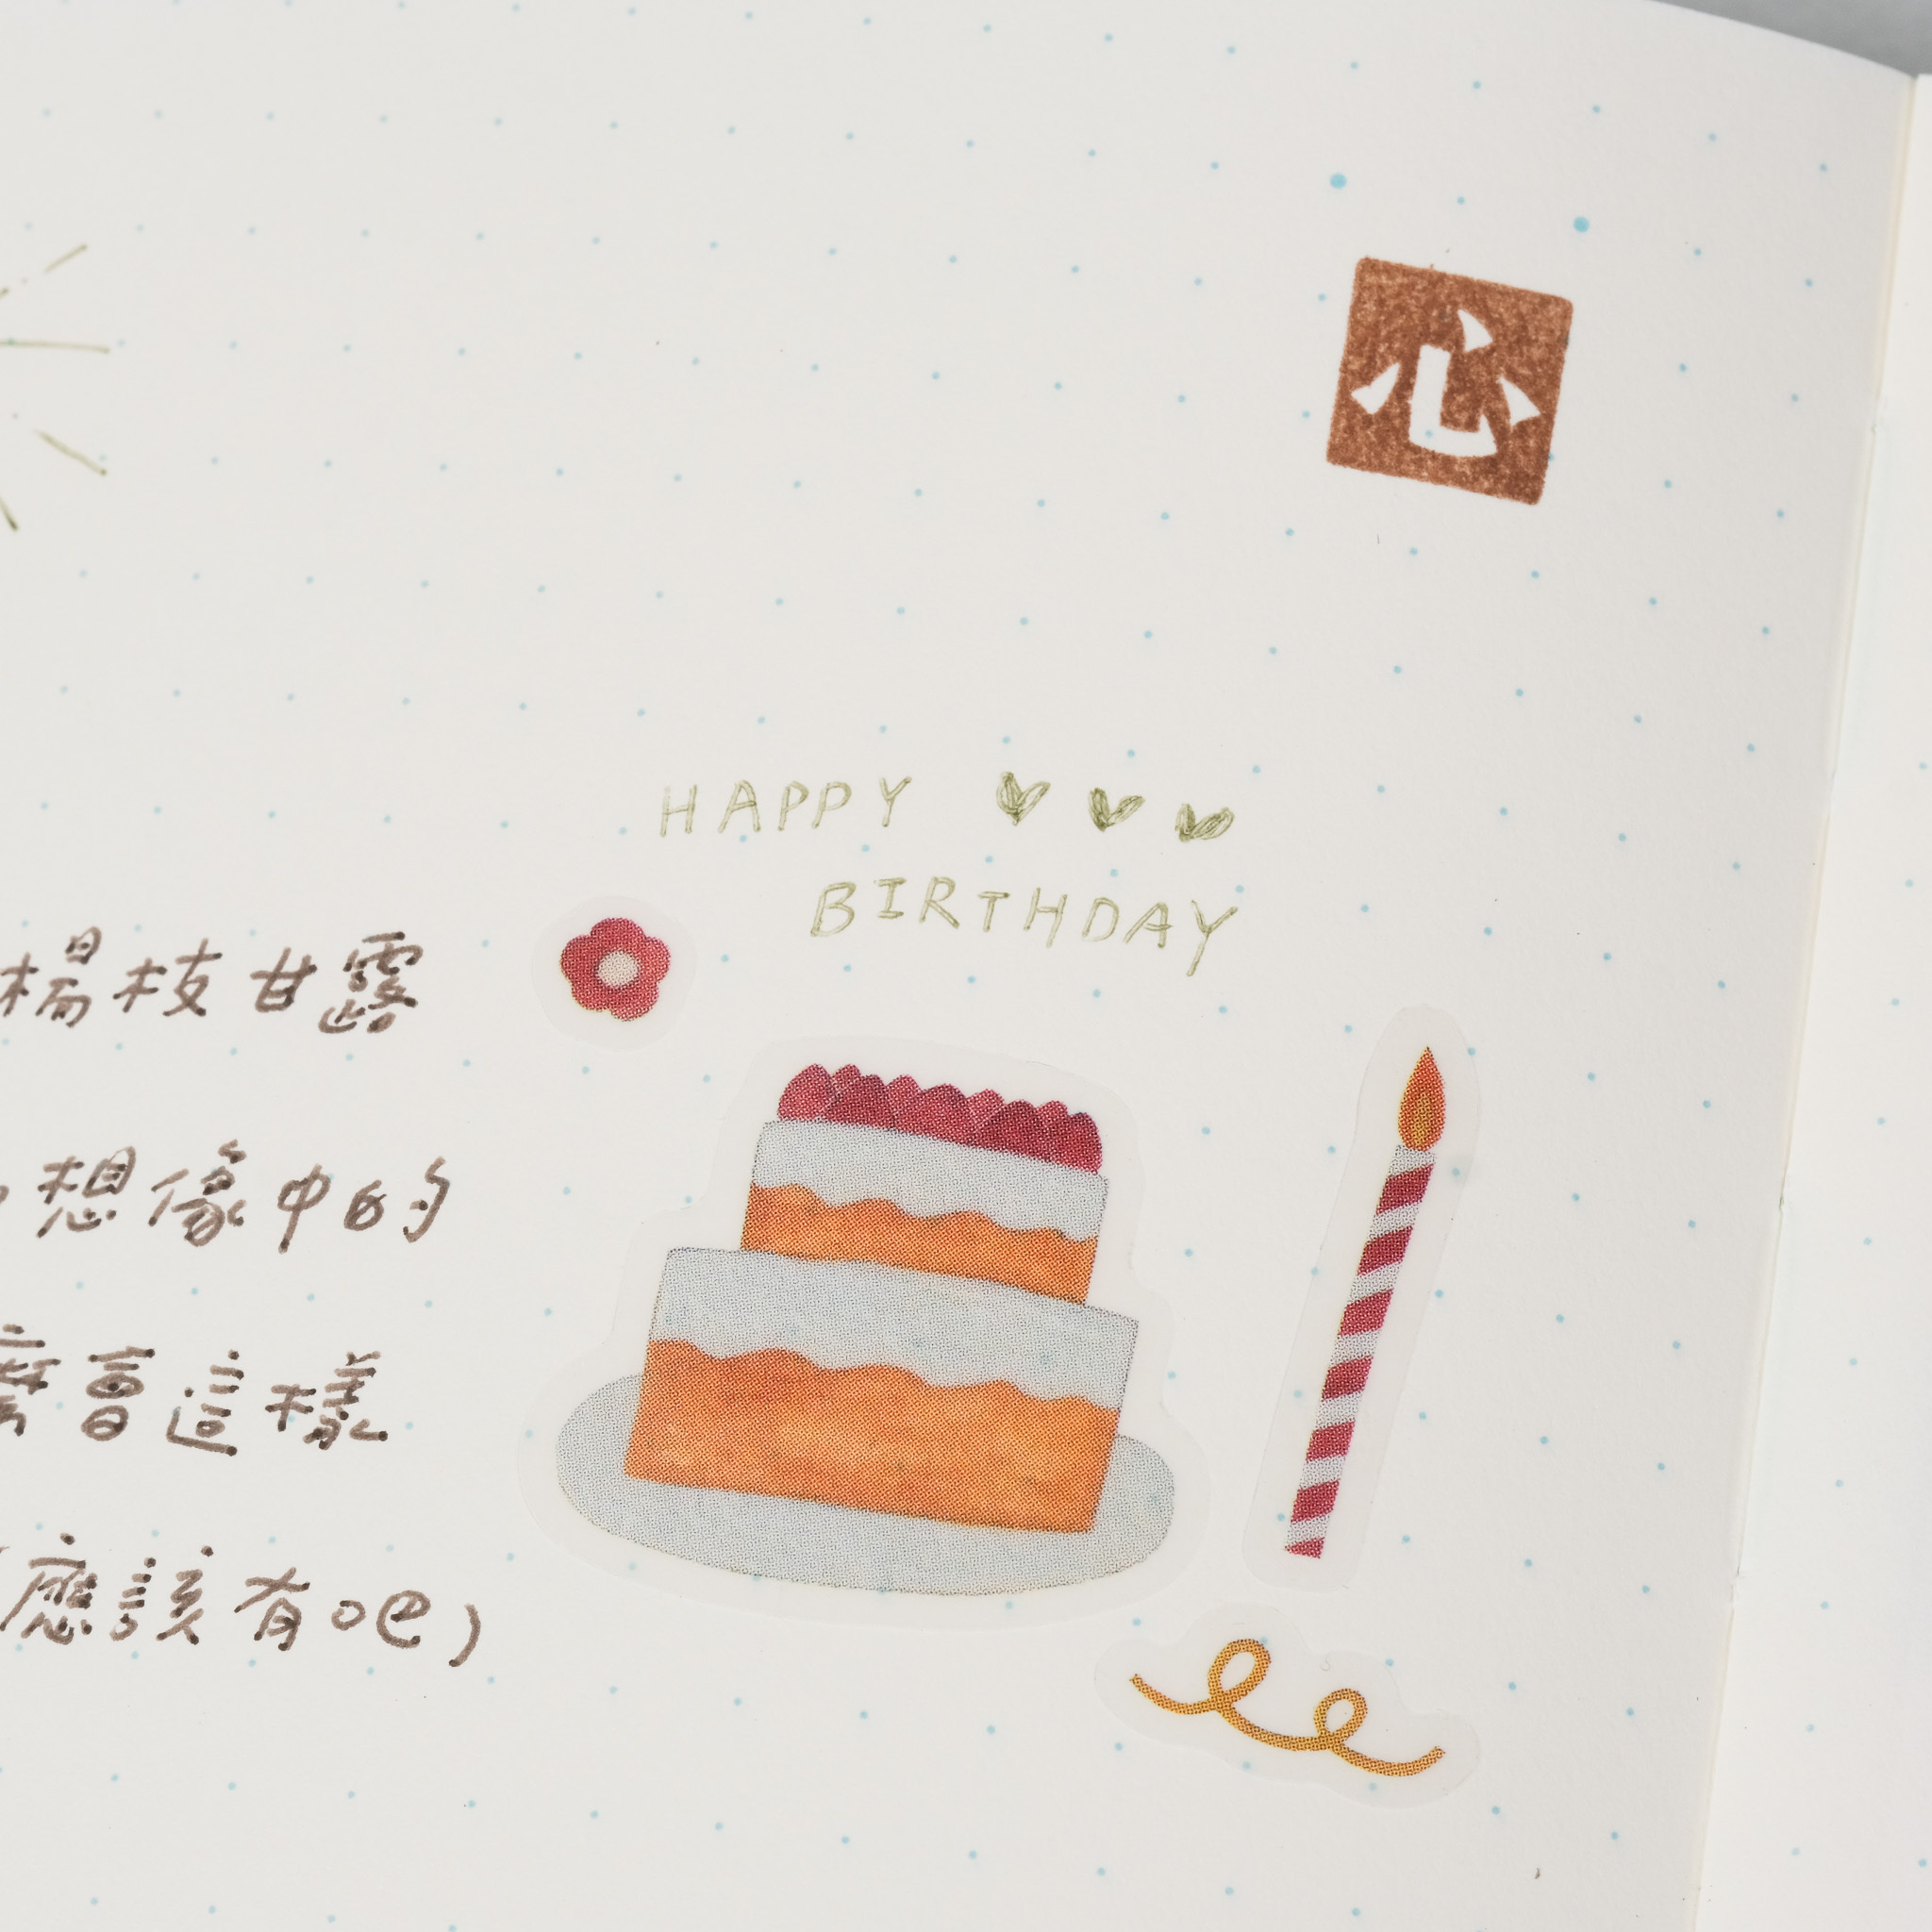 心
HAPPY
BIRTHDAY
楊枝甘露
想像中的
麼會這樣
應該有吧)